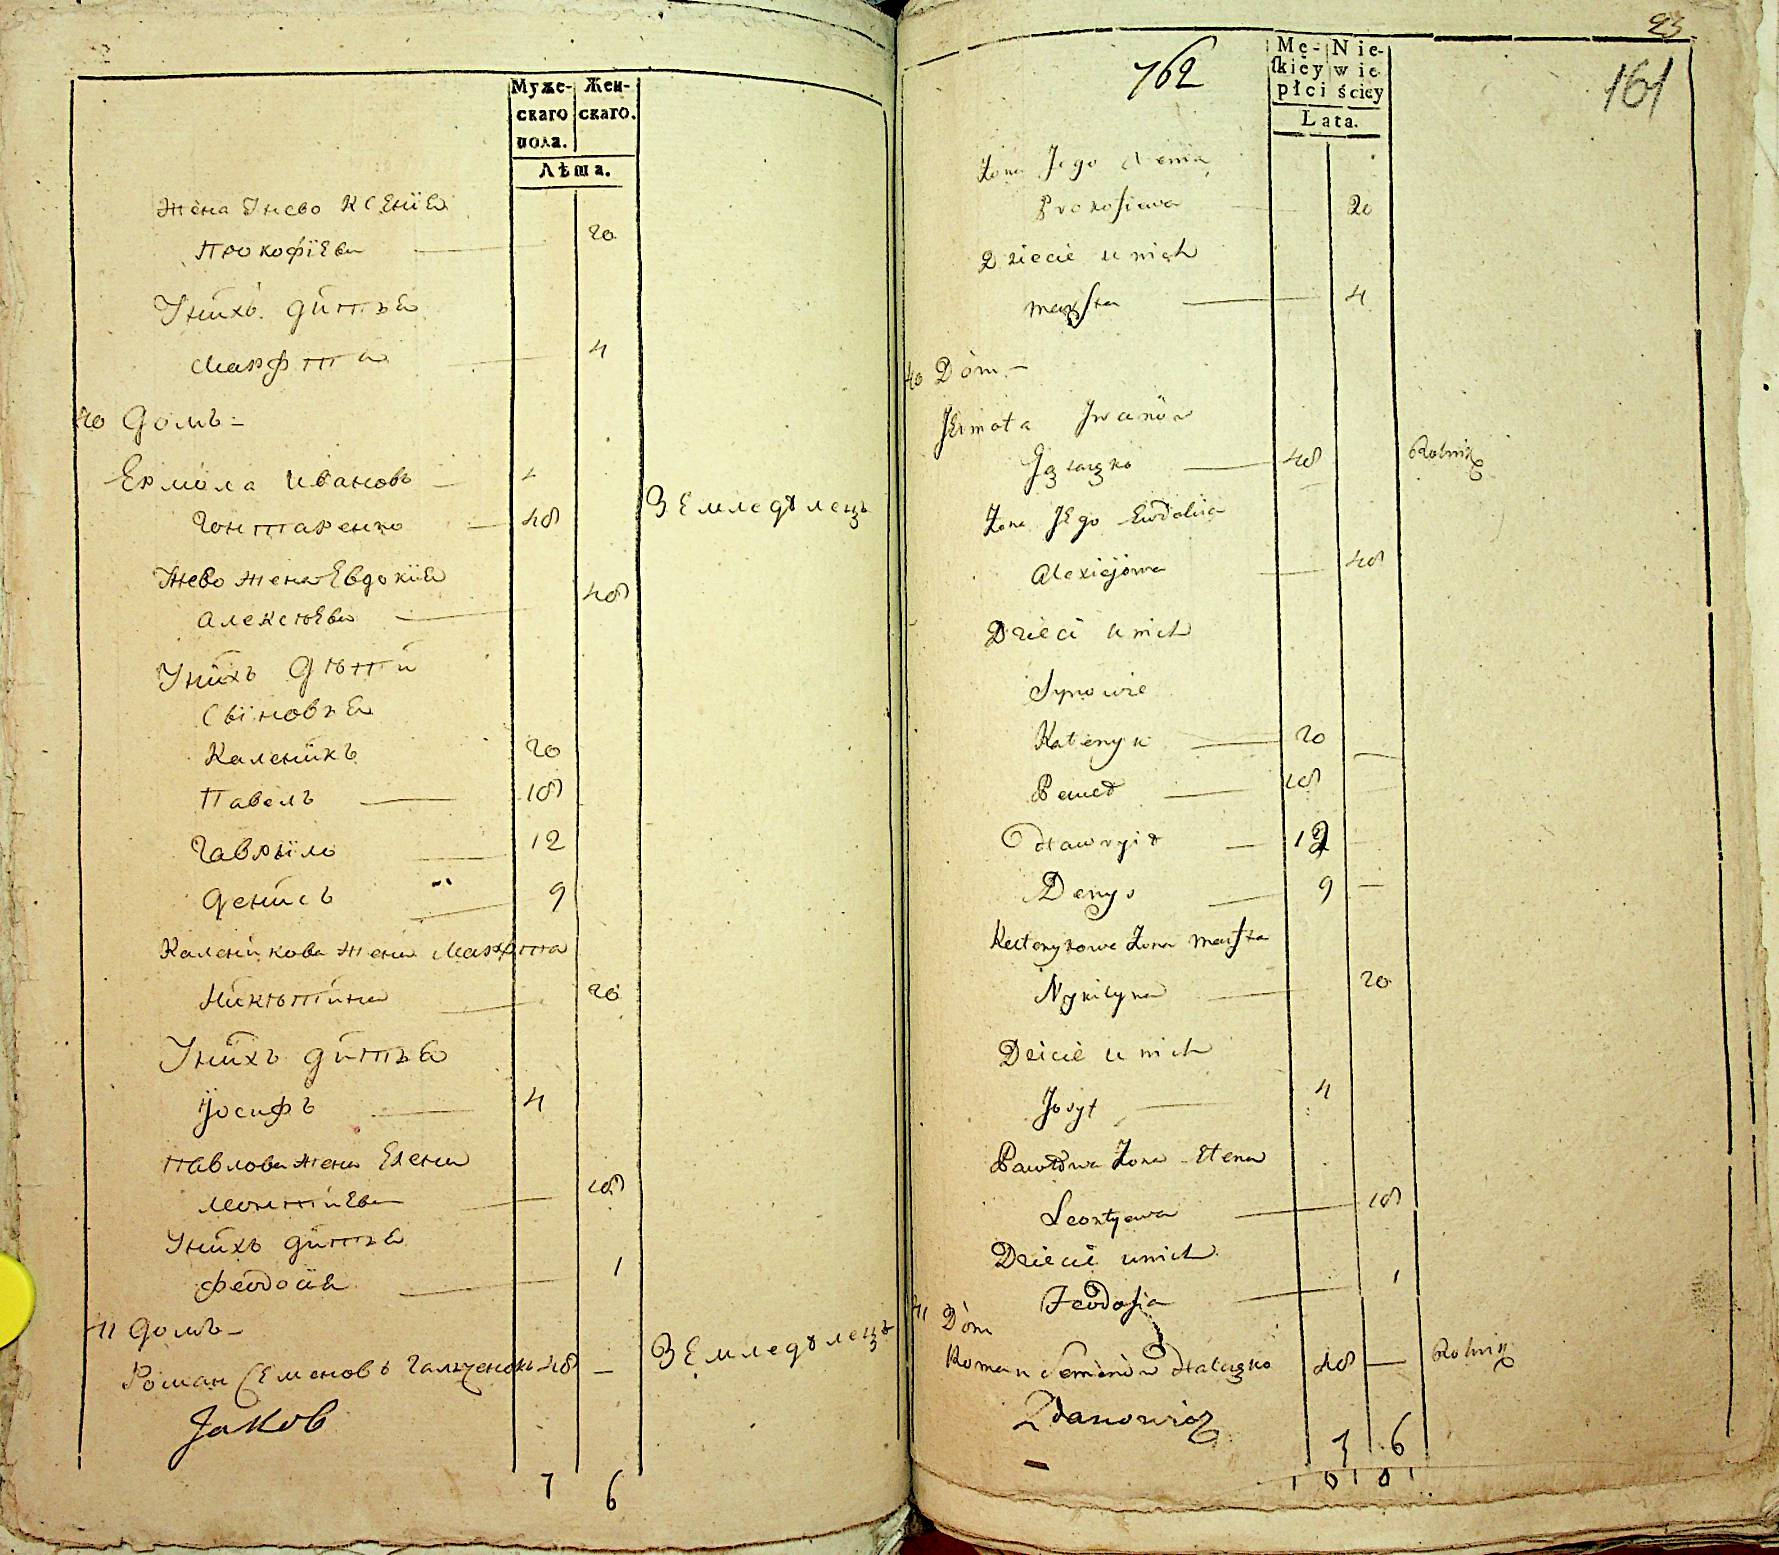 Муже- Жен-
скаго скаго.
пола.
Лѣта.
Жена Унево Ксенїя
Прокофїева 20
Унихъ дитья
Марфта 4
40 Домъ
Ермола Ивановъ
Гонтаренко 48 Земледѣлецъ
Унево жена Евдокїя
Алексѣева 48
Унихъ дѣти
Сыновья
Каленикъ 20
Павелъ 18
Гаврыло 12
Денисъ 9
Каленикова жена Марфта
Никитина 20
Унихъ дитья
Иосифъ 4
Павлова жена Елена
Леонтиева 18
Унихъ дитья
Феодосия 1
41 Домъ
Роман Семеновъ 48 — Земледѣлецъ
Jakob
7 6
23
762
161
Mę- Nie-
ſkiey wie-
płci ściey
Lata.
Żona Jego
Prokofiwa 20
Dziecie u nich
Marfta 4
40 Dóm
Jermoła Iwanów
48 Rolnik
Żona Jego Ewdokia
Alexiejowa 48
Dzieci u nich
Synowie
Kałenyk 20
Paweł 18
Hawryło 12
Denys 9
Kałenykowa Żona Marfta
Nykityna 20
Dziecie u nich
Josyf 4
Pawłowa Żona Ełena
Leontyewa 18
Dziecie u nich
Feodosia 1
41 Dóm
Roman Semenów 48 — Rolnik
Zdanowicz
7 6